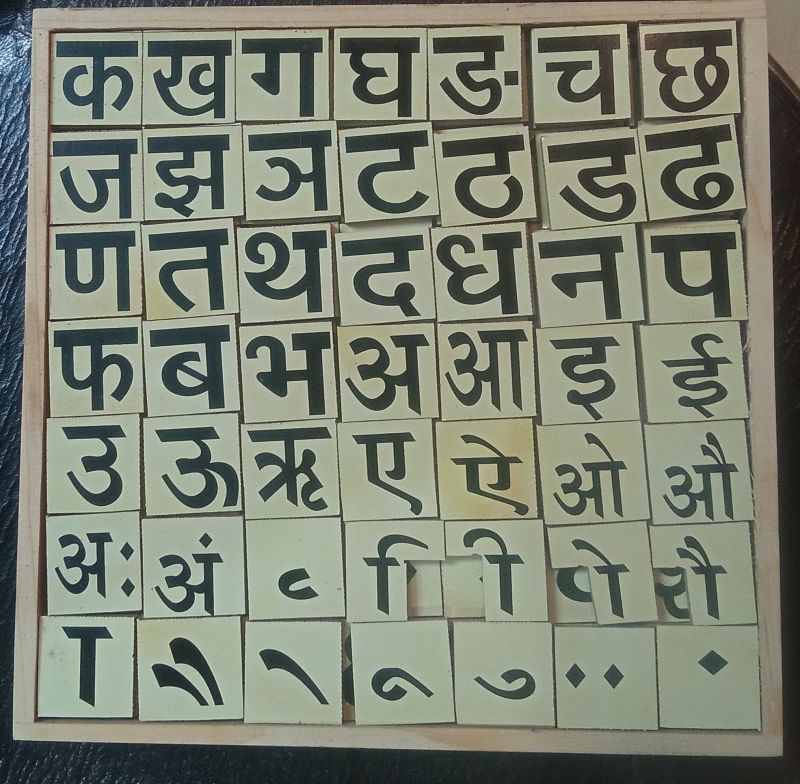 क ख ग घ ङ च छ
ज झ ञ ट ठ ड ढ
ण त थ द ध न प
फ ब भ अ आ इ ई
उ ऊ ऋ ए ऐ ओ औ
अः अं ृ ि ी ो ौ
ा ै े ू ु